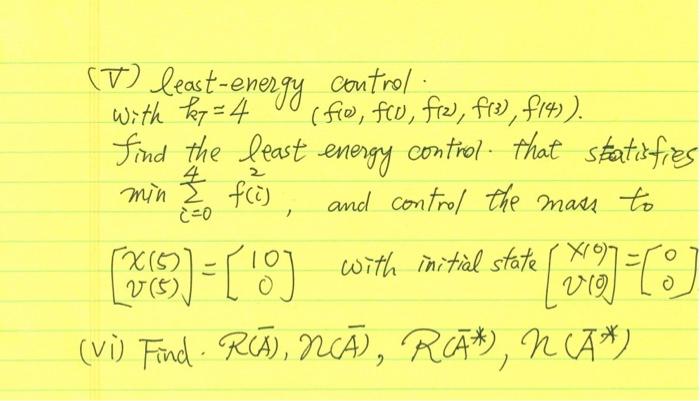 (V) least-energy control.
with k_T = 4 (f(0), f(1), f(2), f(3), f(4)).
find the least energy control. that statisfies
min Σ_{i=0}^{4} f(i)^2, and control the mass to
[x(5) v(5)] = [10 0] with initial state [x(0) v(0)] = [0 0]
(vi) Find. R(Ā), n(Ā), R(Ā*), n(Ā*)